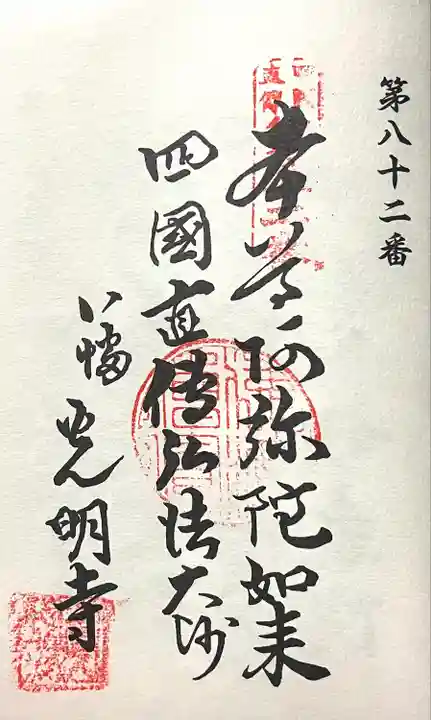 第八十二番
本尊阿弥陀如来
四國直傳弘法大師
八幡光明寺